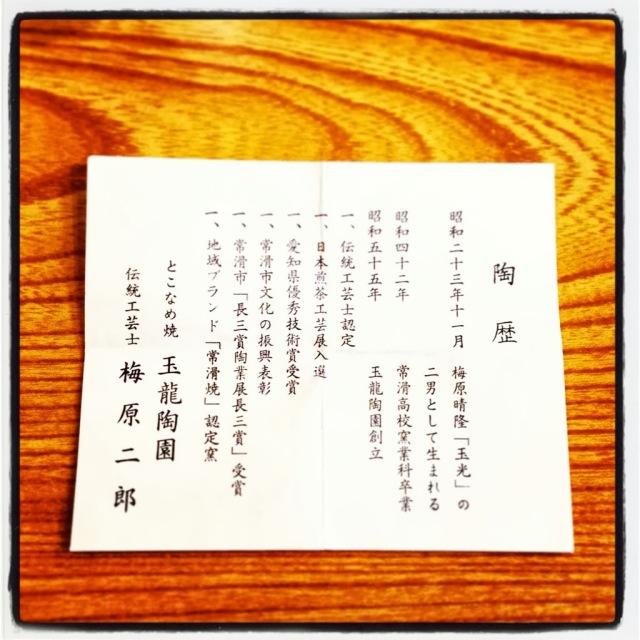 陶歴
昭和二十三年十一月 梅原晴隆「玉光」の
二男として生まれる
昭和四十二年 常滑高校窯業科卒業
昭和五十五年 玉龍陶園創立
一、伝統工芸士認定
一、日本煎茶工芸展入選
一、愛知県優秀技術賞受賞
一、常滑市文化の振興表彰
一、常滑市「長三賞陶業展長三賞」受賞
一、地域ブランド「常滑焼」認定窯
とこなめ焼 玉龍陶園
伝統工芸士 梅原二郎